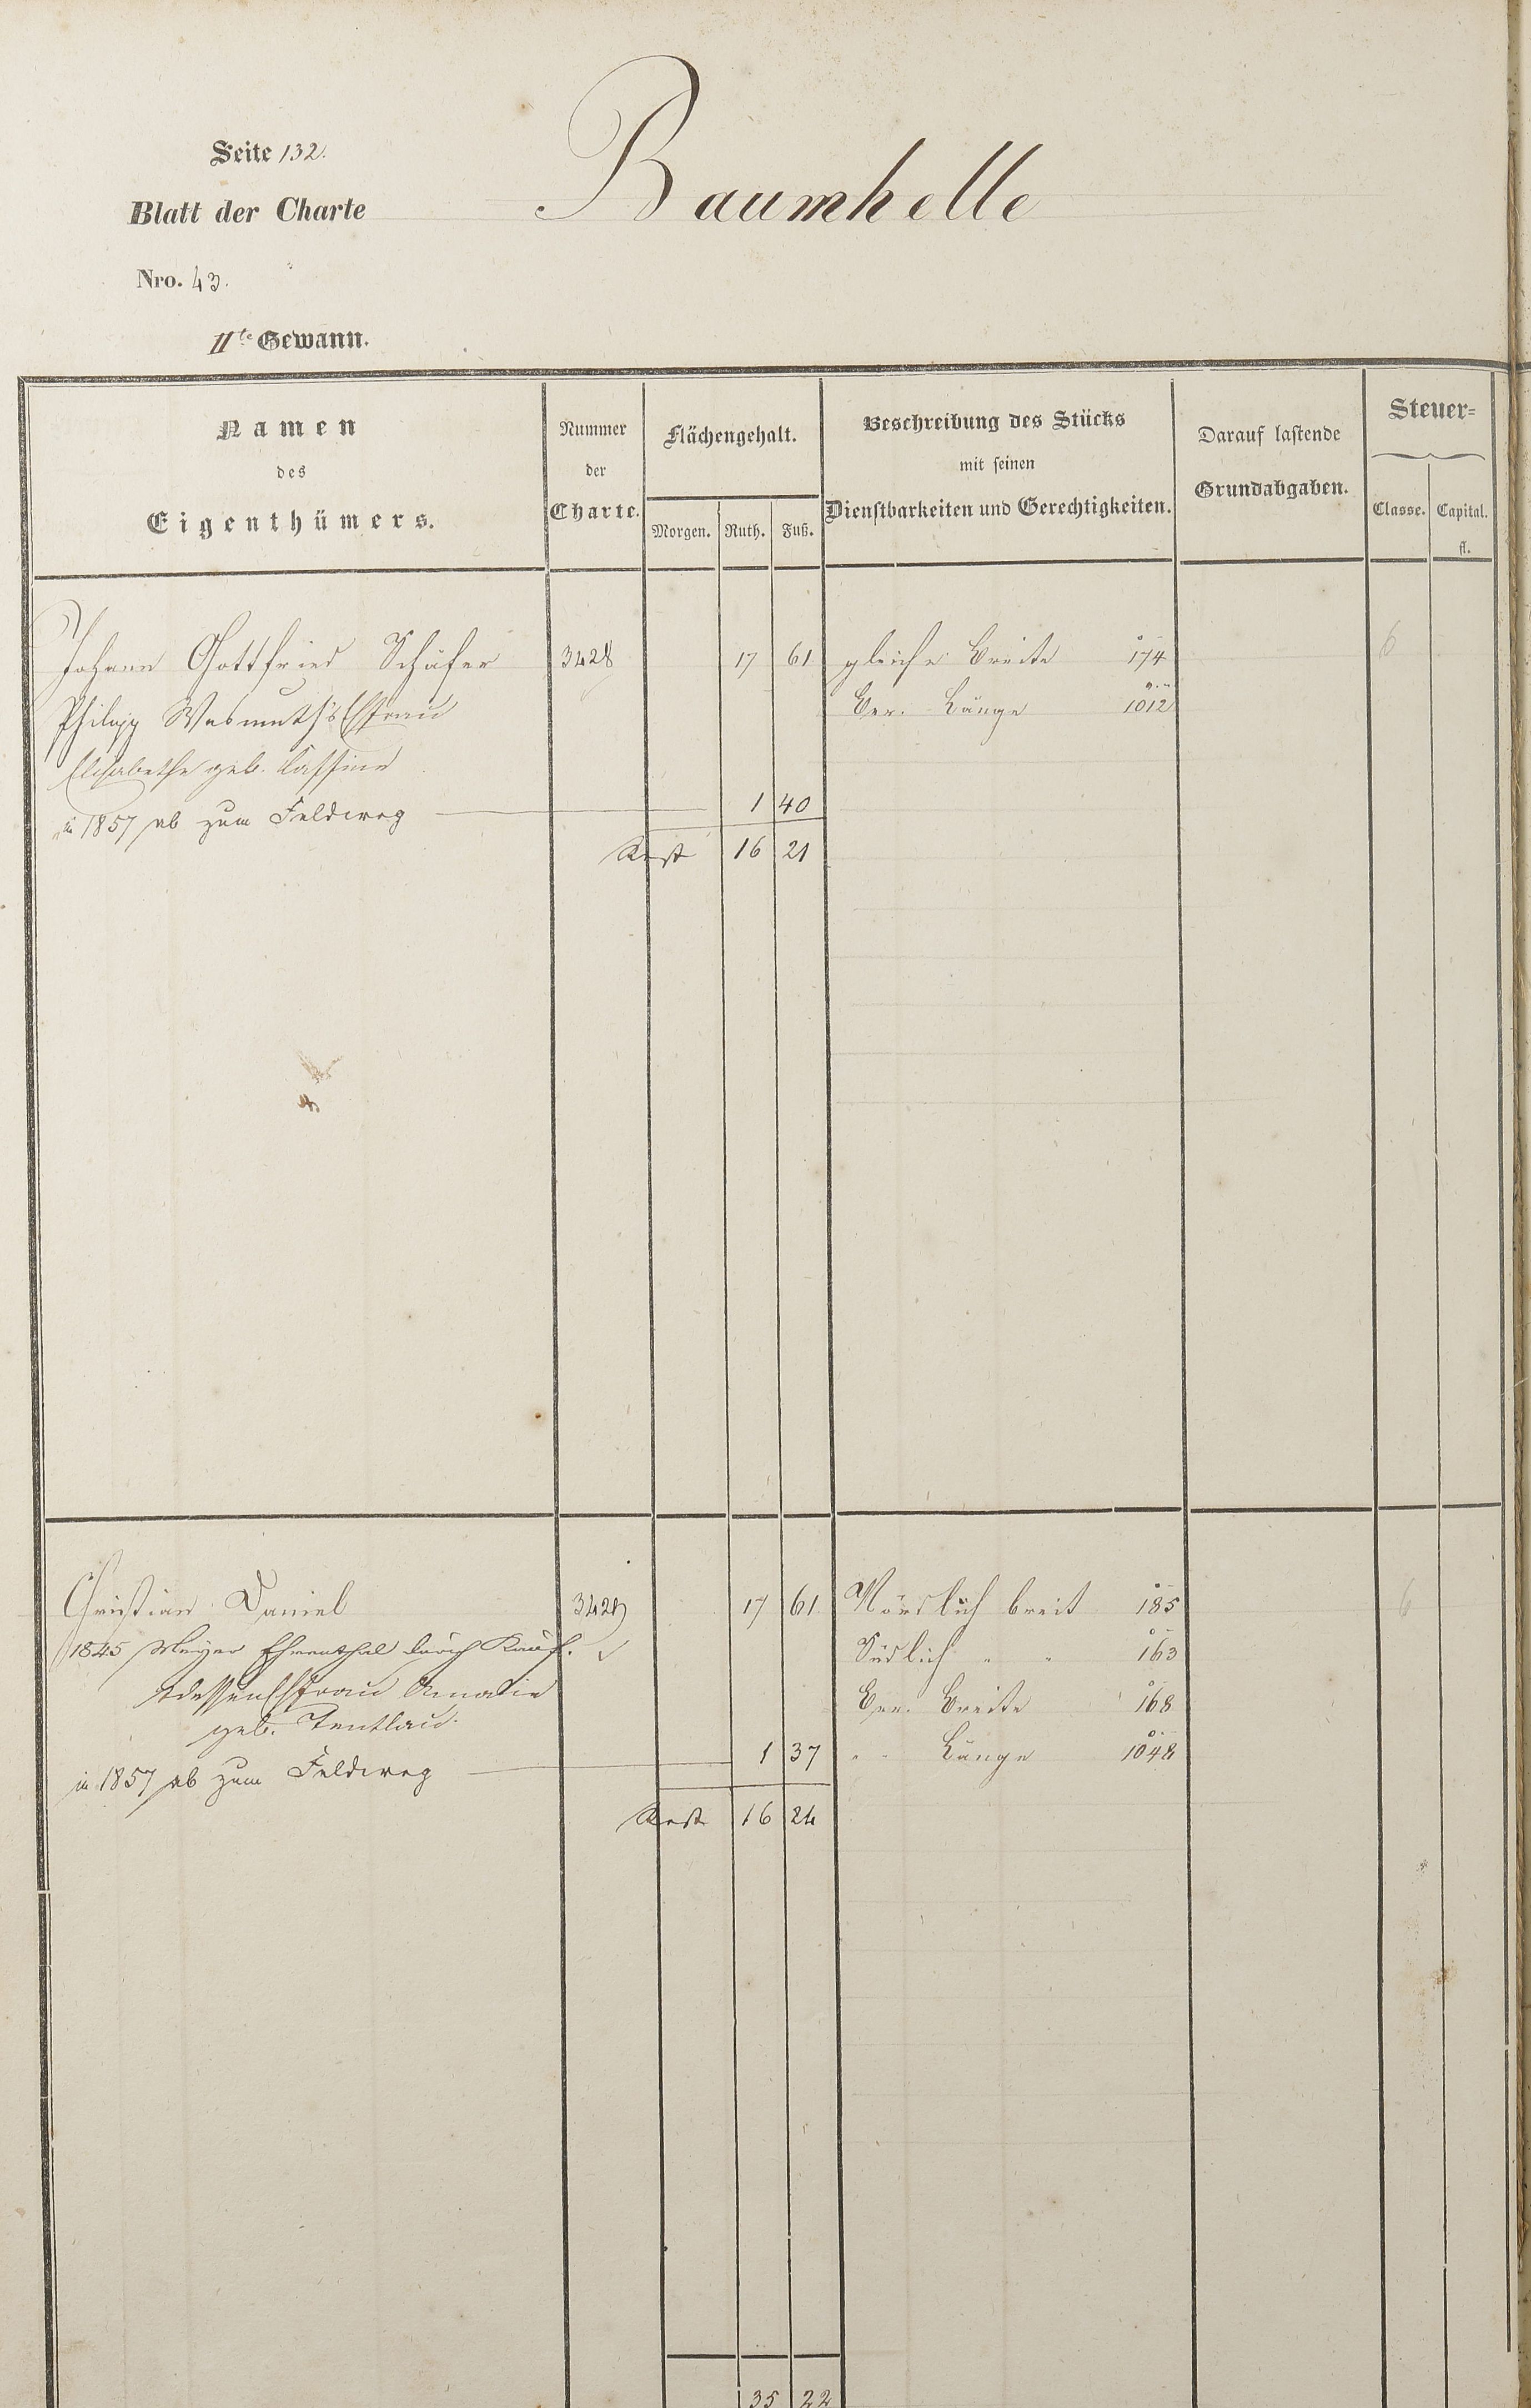 Seite 132.
Baumhelle
Blatt der Charte
Nro. 43.
IIte Gewann.
Namen
des
Eigenthümers.
Nummer
der
Charte.
Flächengehalt.
Morgen. Ruth. Fuß.
Beschreibung des Stücks
mit seinen
Dienstbarkeiten und Gerechtigkeiten.
Darauf lastende
Grundabgaben.
Steuer=
Classe. Capital.
fl.
Johann Gottfried Schäfer 3428 17 61 gleiche Breite 174 6
Philipp Wasmuth's Ehfrau Ber. Länge 1012
Elisabethe geb.
in 1857 ab zum Feldweg 1 40
Rest 16 21
Christian Daniel 3429 17 61 Nördlich breit 185 6
1845 Meyer Ehrenthal durch Kauf. Südlich " " 163
dessen Ehfrau Amalie Ber. Breite 168
geb.
1 37 " " Länge 1048
in 1857 ab zum Feldweg
Rest 16 24
35 22